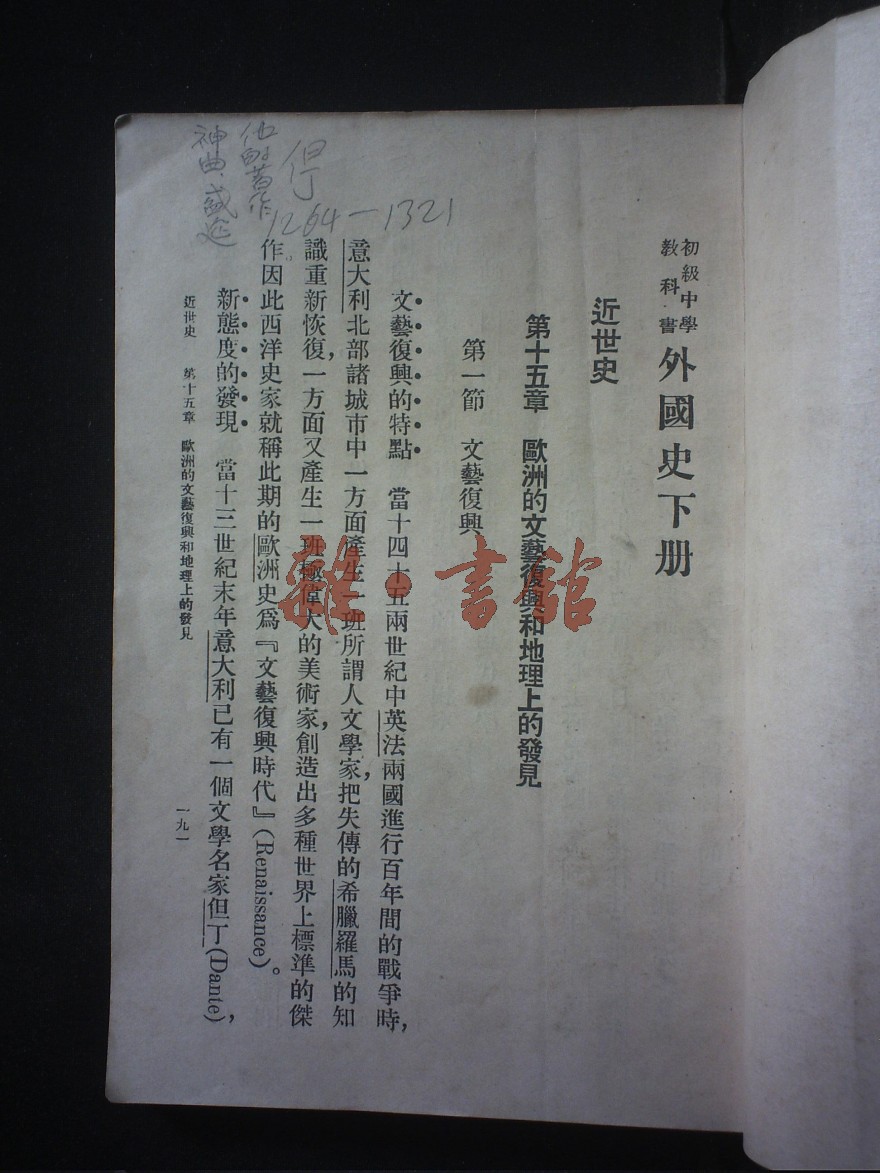 初級中學
教科書
外國史下册
近世史
第十五章　歐洲的文藝復興和地理上的發見
第一節　文藝復興
文藝復興的特點　當十四十五兩世紀中英法兩國進行百年間的戰爭時，
意大利北部諸城市中一方面產生一班所謂人文學家，把失傳的希臘羅馬的知
識重新恢復，一方面又產生一班極偉大的美術家，創造出多種世界上標準的傑
作因此西洋史家就稱此期的歐洲史爲『文藝復興時代』(Renaissance)。
新態度的發現　當十三世紀末年意大利已有一個文學名家但丁(Dante)，
近世史　第十五章　歐洲的文藝復興和地理上的發見
一九一
但丁
1264—1321
他的著作
神曲、
雜·書館